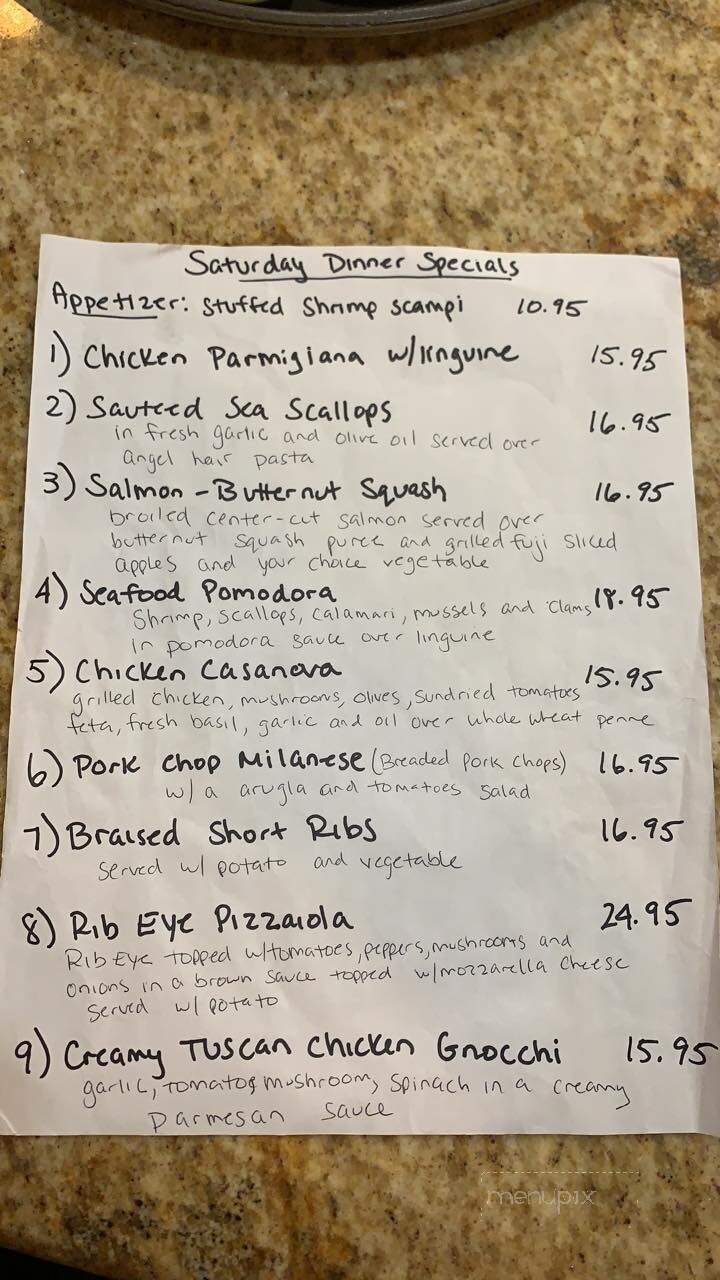 Saturday Dinner Specials
Appetizer: Stuffed Shrimp Scampi 10.95
1) Chicken Parmigiana w/linguine 15.95
2) Sauteed Sea Scallops 16.95
in fresh garlic and olive oil served over
angel hair pasta
3) Salmon - Butternut Squash 16.95
broiled center-cut salmon served over
butternut squash puree and grilled fuji sliced
apples and your choice vegetable
4) Seafood Pomodora 18.95
Shrimp, scallops, calamari, mussels and clams
in pomodora sauce over linguine
5) Chicken Casanova 15.95
grilled chicken, mushrooms, olives, sundried tomatoes
feta, fresh basil, garlic and oil over whole wheat penne
6) Pork Chop Milanese (Breaded Pork Chops) 16.95
w/ a arugla and tomatoes salad
7) Braised Short Ribs 16.95
Served w/ potato and vegetable
8) Rib Eye Pizzaiola 24.95
Rib Eye topped w/tomatoes, peppers, mushrooms and
onions in a brown sauce topped w/mozzarella cheese
served w/ potato
9) Creamy Tuscan Chicken Gnocchi 15.95
garlic, tomatos mushroom, spinach in a creamy
Parmesan sauce
menupix